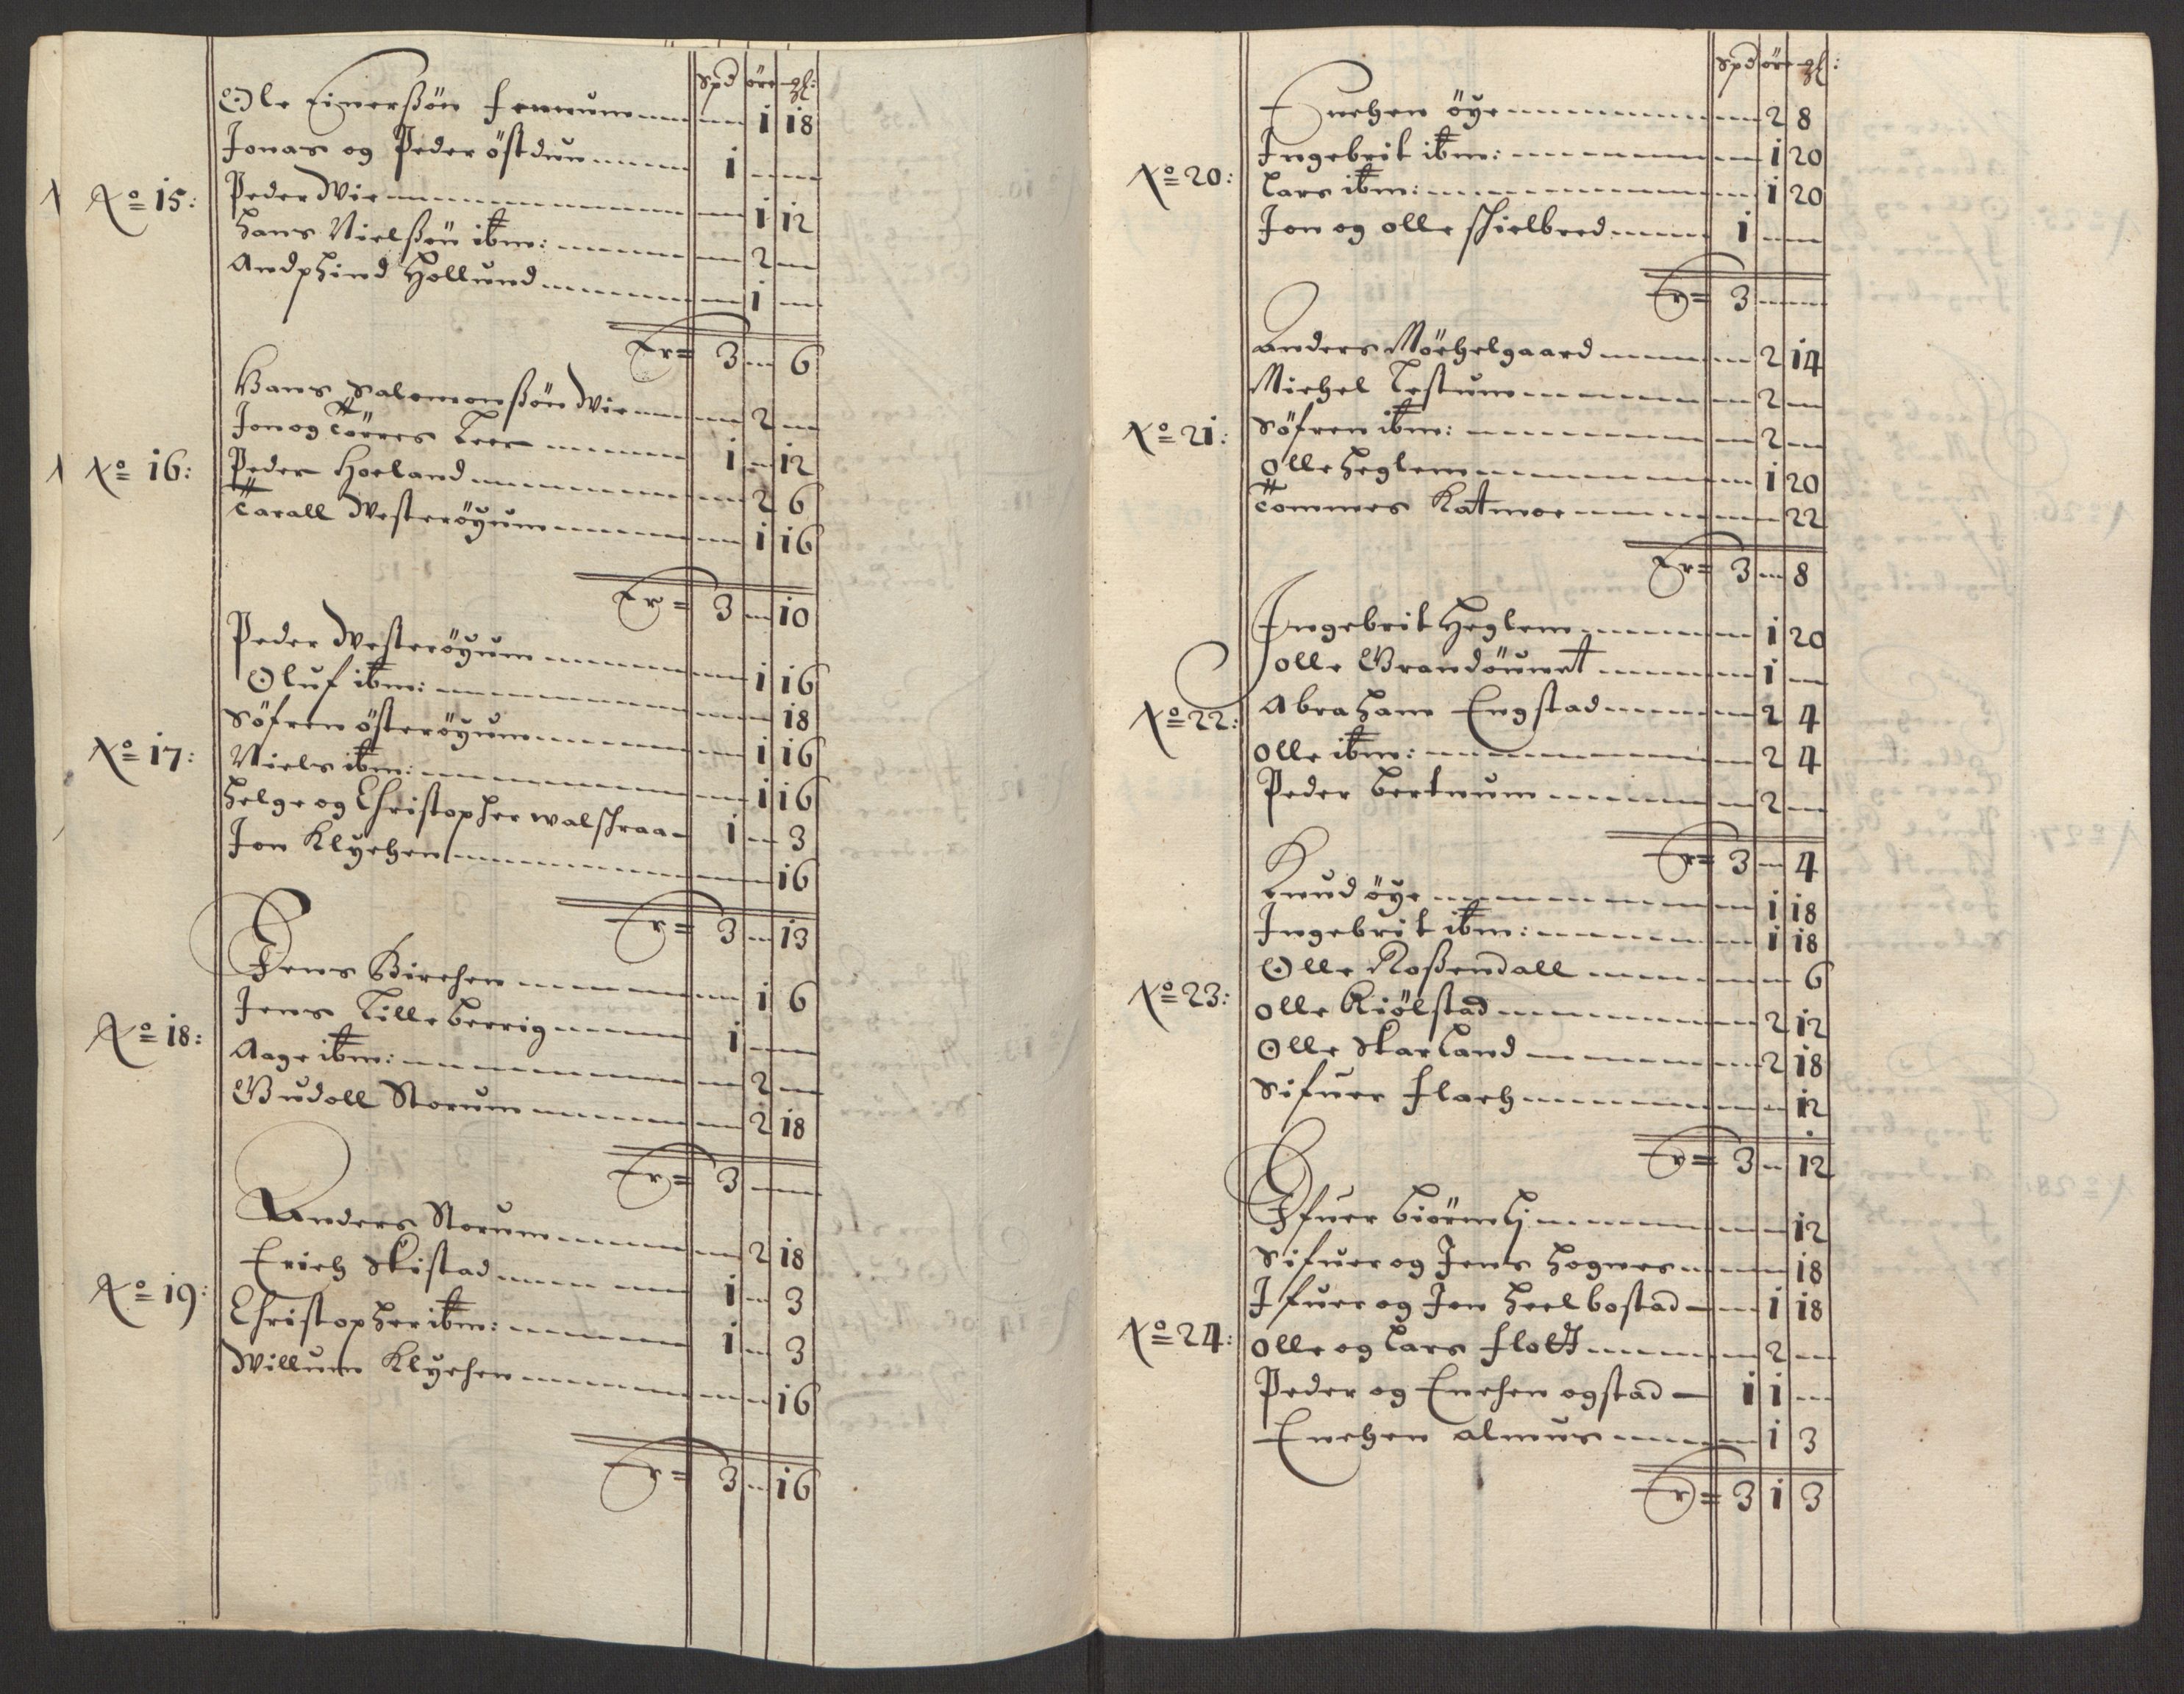 Spd öre gl:
Ole Einerßön Fennum 1 18
Jonas og Peder östdun 1
No 15: Peder Wie 1 12
Hans Nielßön ibm: 2
Andphind Hollund 1
Er= 3 6
Hans Salomonßön Wie 2
Jon og Törres Leer 1 12
No 16: Peder Hoeland 2 6
Tarall Westeröyum 1 16
Er= 3 10
Peder Westeröyum 1 16
Oluf ibm: 18
Söfren österöyum 1 16
No 17: Niels ibm: 1 16
Helge og Christopher walschraa 1 3
Jon Klychen 16
Er= 3 13
Jens Birchen 1 6
Jens Lilleberrig 1
No 18: Aage ibm: 2
Gudoll Storum 2 18
Er= 3
Anders Storum 2 18
Erich Skistad 1 3
No 19: Christopher ibm: 1 3
Willum Klychen 16
Er= 3 16
Spd öre gl:
Enchen öye 2 8
Ingebrit ibm: 1 20
No 20: Lars ibm: 1 20
Jon og olle schielbred 1
Er= 3
Anders Möchelgaard 2 14
Michel Lestum 2
No 21: Söfren ibm: 2
Olle Heglem 1 20
Tommes Katmoe 22
Er= 3 8
Ingebrit Heglem 1 20
olle Grandöuwet 1
No 22: Abraham Engstad 2 4
olle ibm: 2 4
Peder bertnum 2
Er= 3 4
Knud öye 1 18
Ingebrit ibm: 1 18
Olle Roßendall 6
No 23: olle Kiölstad 2 12
Olle Skarland 2 18
Sifuer Flach 12
Er= 3 12
Ifuer biörnlj 12
Sifuer og Jens Hognes 18
Ifuer og Jon Heelbostad 1 18
No 24: olle og Lars Flott 2
Peder og Enchen ogstad 1 1
Enchen almus 1 3
Er= 3 1 3